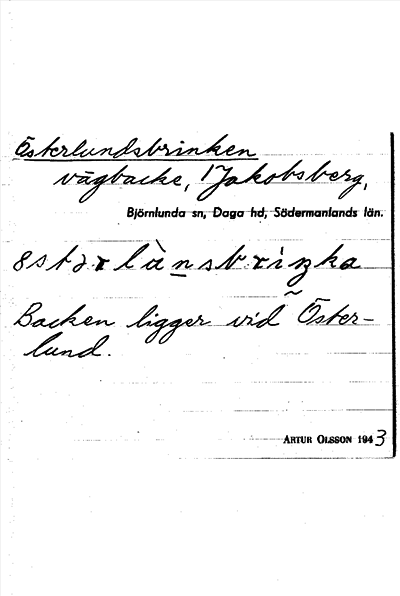 Österlundsbrinken
vägbacke, 1 Jakobsberg,
Björnlunda sn, Daga hd, Södermanlands län.
Backen ligger vid Öster-
lund.
ARTUR OLSSON 1943